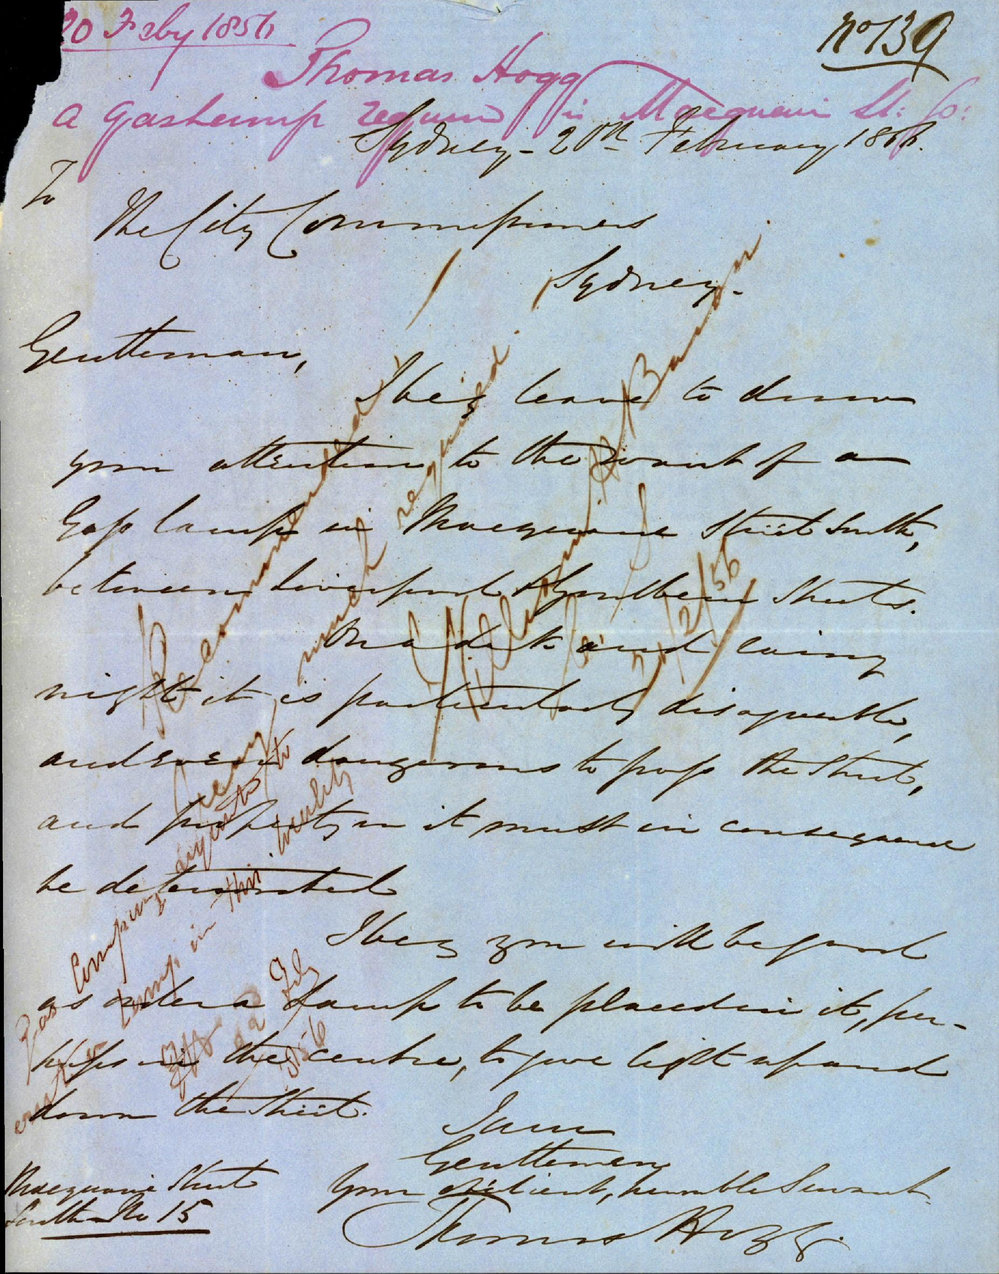 20 Feby 1856
No 139
Thomas Hogg
a Gas Lamp required in Macquarie St: So:
Sydney - 20th February 1856.
To
The City Commissioners
Sydney.
Gentleman,
I beg leave to draw
your attention to the want of a
Gas lamp in Macquarie Street South,
between Liverpool & Goulburn Streets.
On a dark and rainy
night it is particularly disagreeable,
and even dangerous to pass the Street,
and property in it must in consequence
be deteriorated
I beg you will be good
as order a Lamp to be placed in it, per-
haps in the centre, to give light up and
down the Street.
I am
Gentlemen
Your obedient, humble Servant
Thomas Hogg.
Macquarie Street
South No 15
Recommended
much required
21/2/56
Gas Company to
erect a lamp in this locality
22 Feby
1856